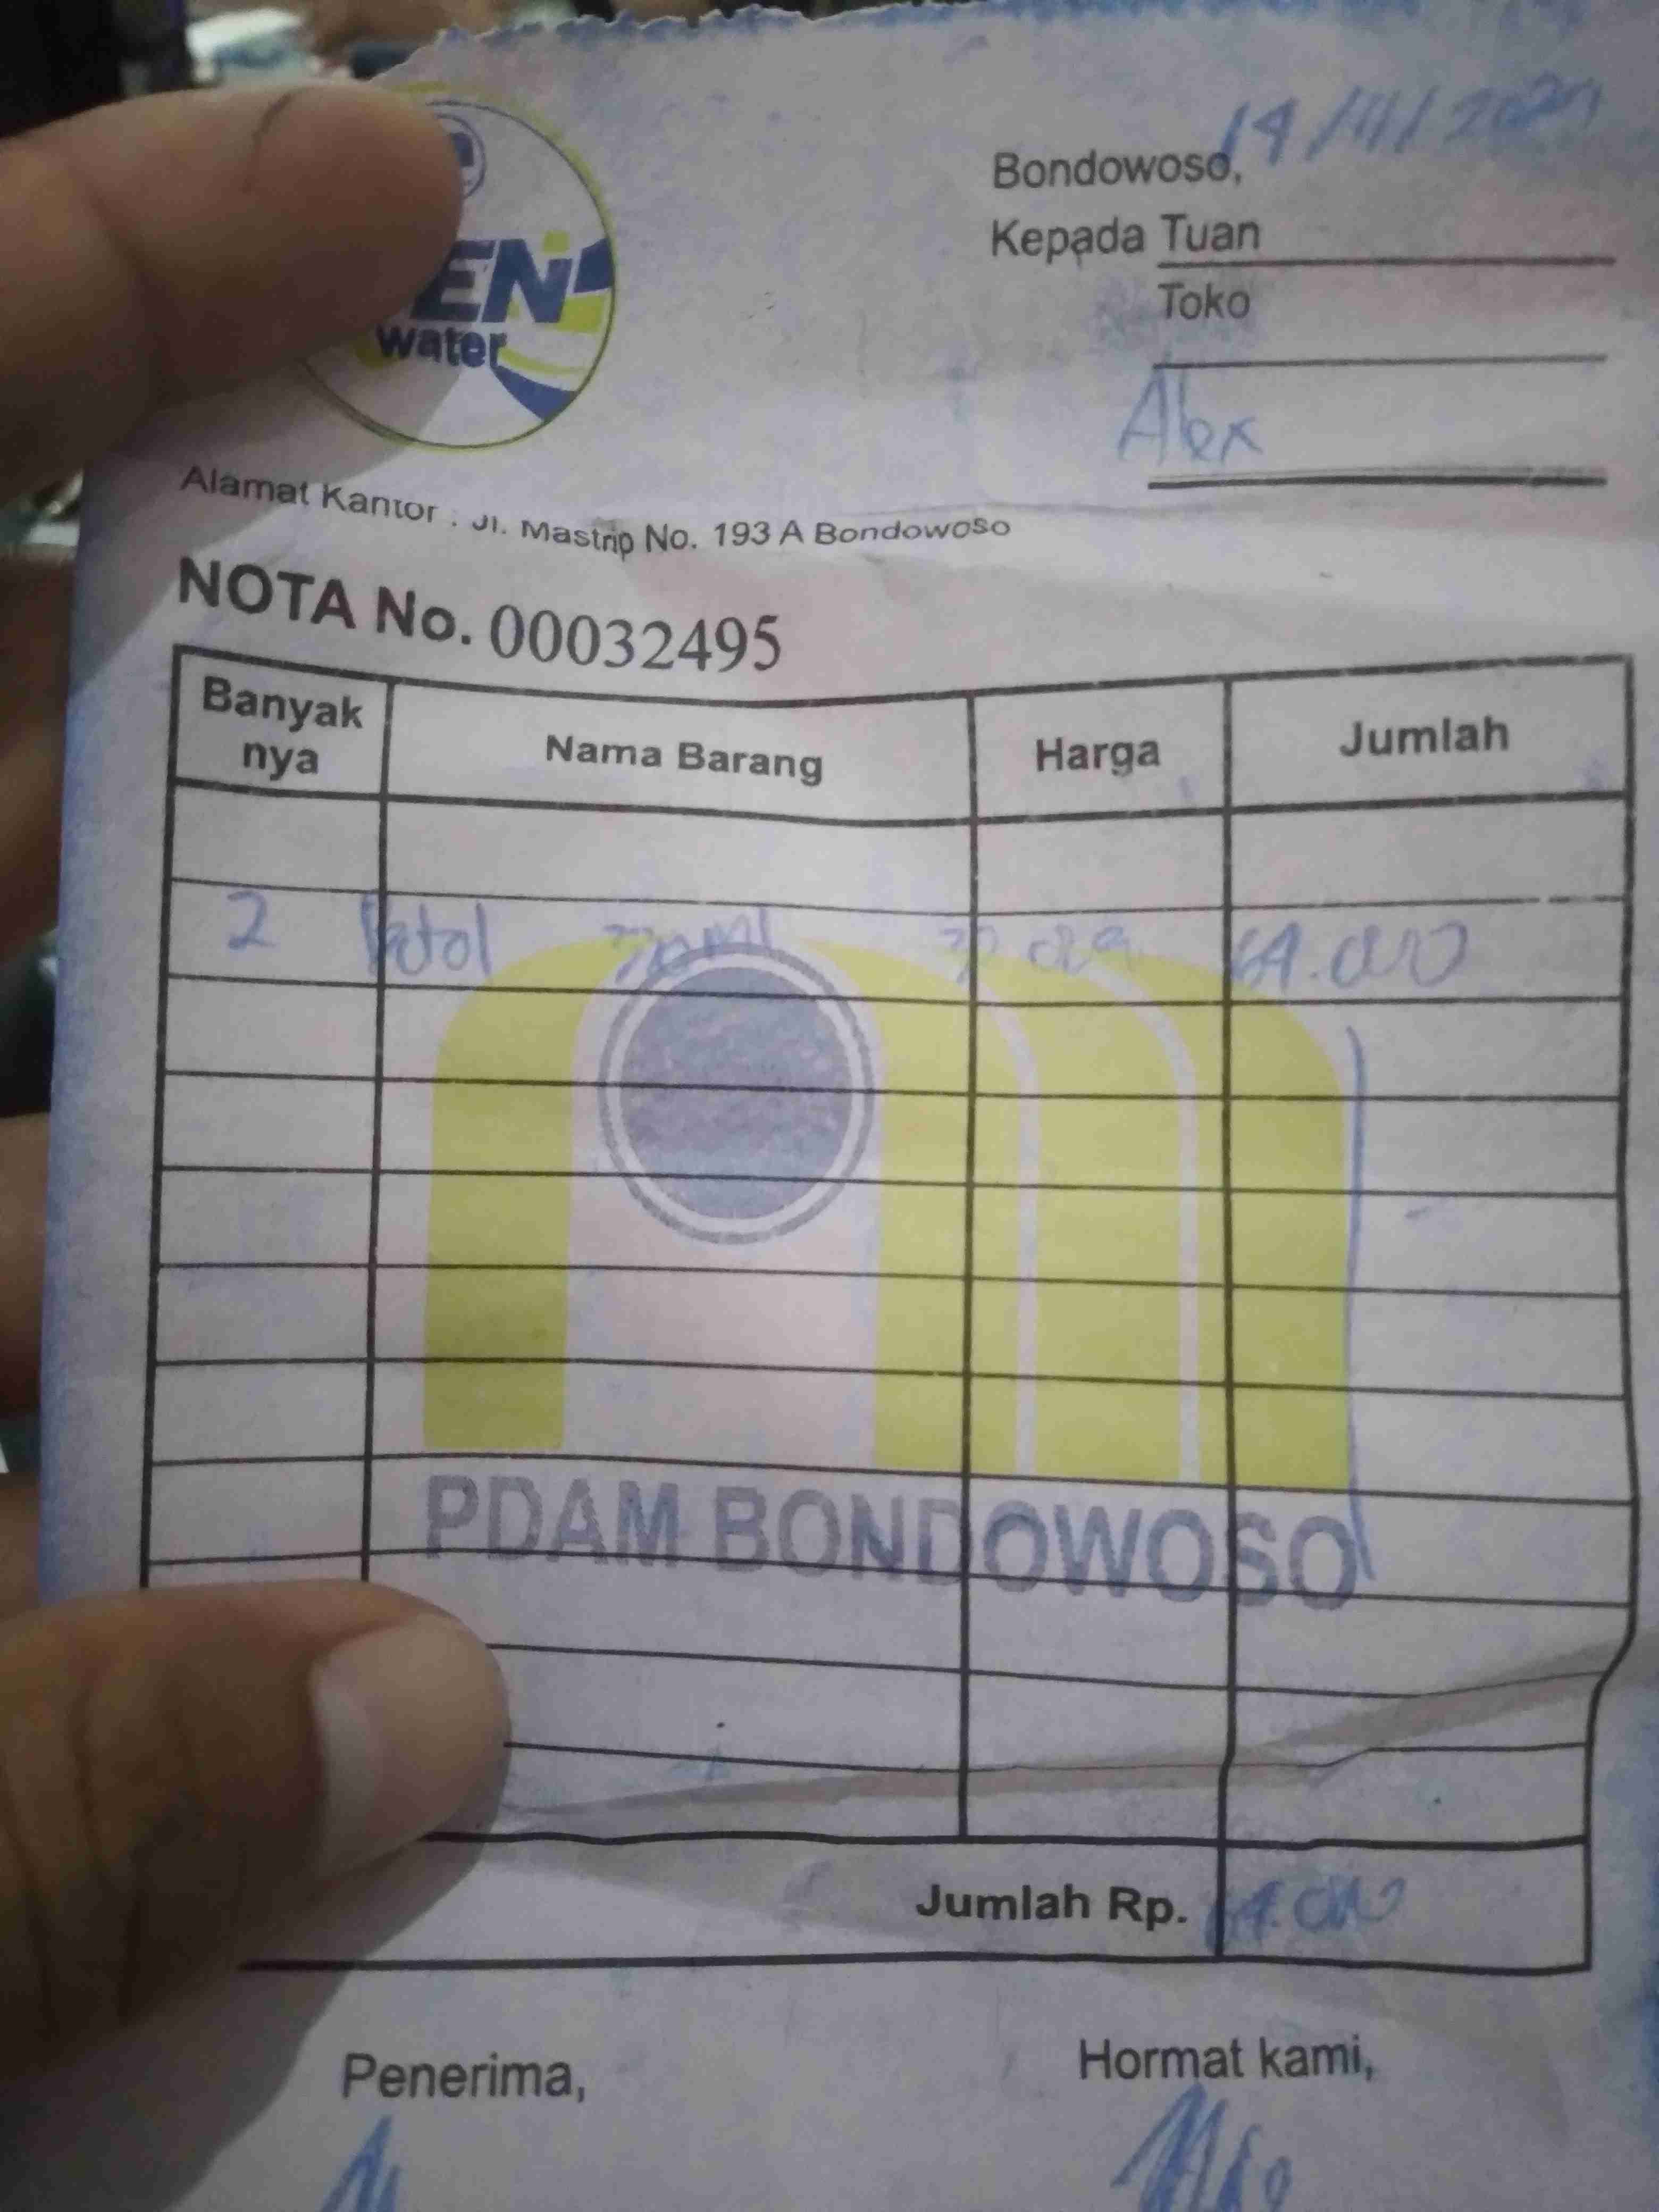 Bondowoso,
Kepada Tuan
Toko
Alex
EN
water
Alamat Kantor : Jl. Mastrip No. 193 A Bondowoso
NOTA No. 00032495
Banyak nya Nama Barang Harga Jumlah
2 botol 64.000
PDAM BONDOWOSO
Jumlah Rp. 64.000
Penerima, Hormat kami,